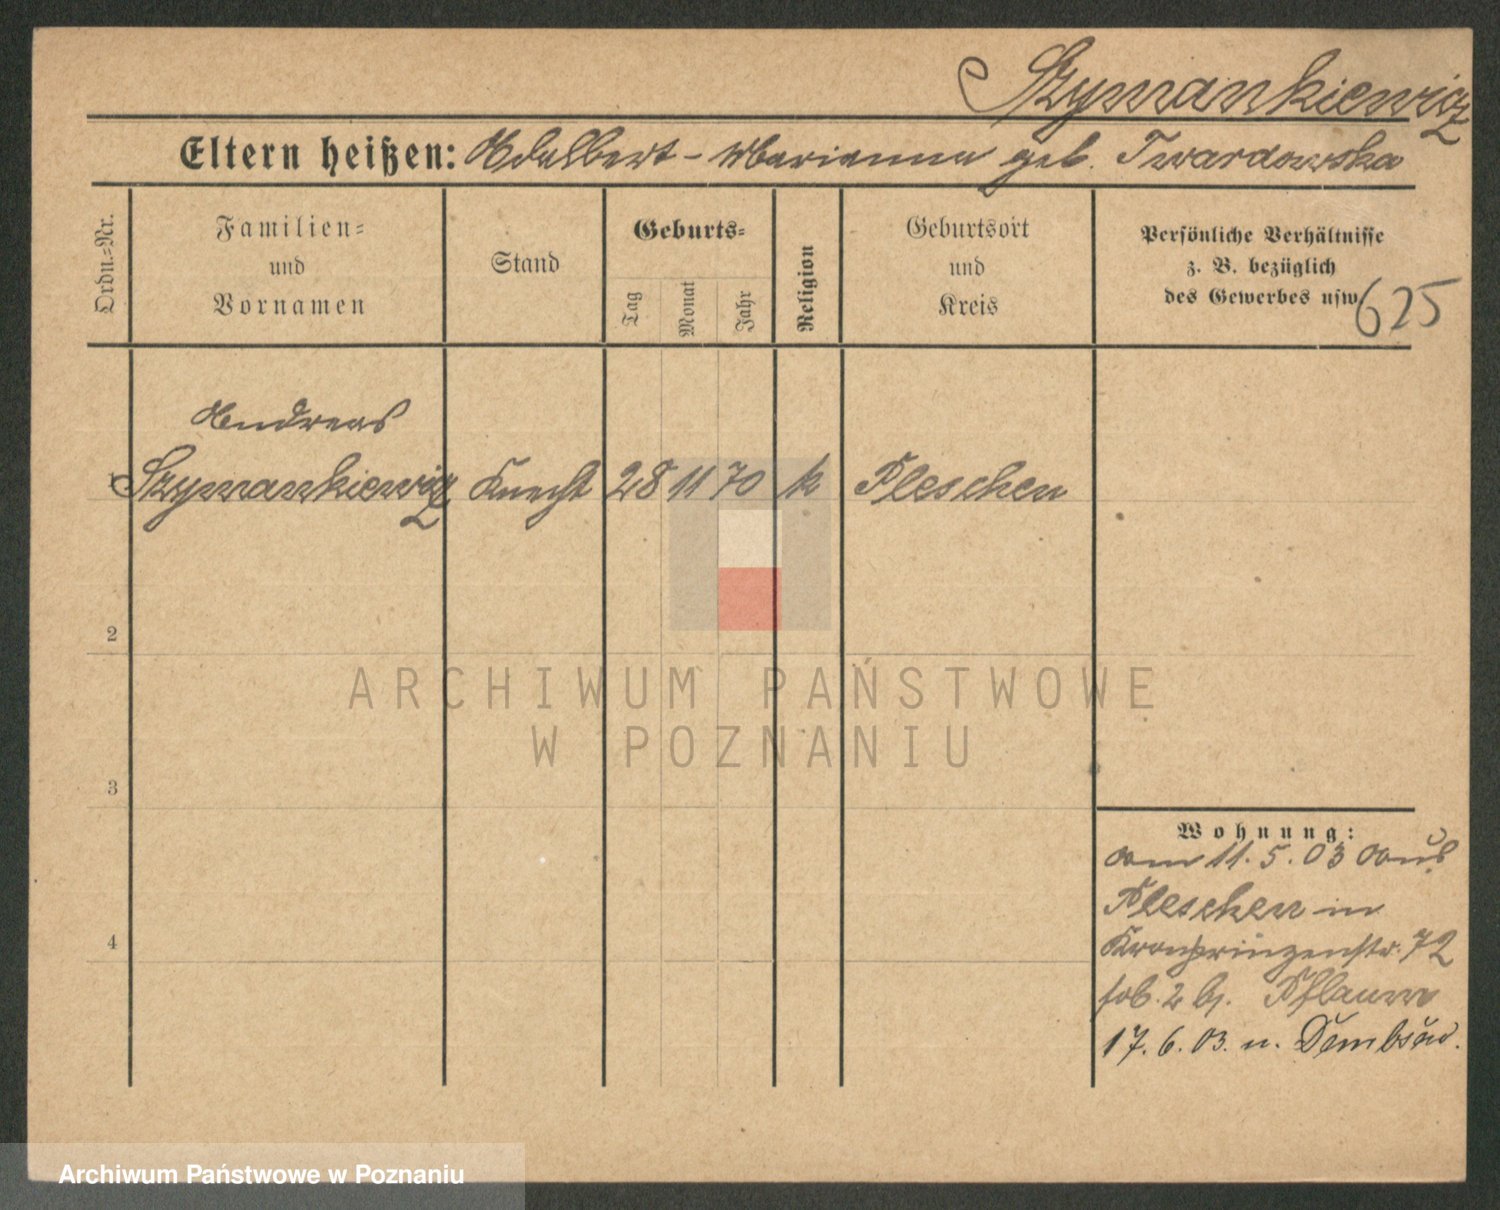 Szymankiewicz
Eltern heißen: Adalbert - Marianna geb. Twardowska
Ordn.=Nr.
Familien=
und
Vornamen
Stand
Geburts=
Tag
Monat
Jahr
Religion
Geburtsort
und
Kreis
Persönliche Verhältnisse
z. B. bezüglich
des Gewerbes usw.
625
Andreas
1 Szymankiewicz Knecht 28 11 70 k Pleschen
2
3
4
ARCHIWUM PAŃSTWOWE
W POZNANIU
Wohnung:
am 11.5.03 aus
Pleschen in
Kronprinzenstr. 72
2 b. Pflaum
17.6.03. n. Dembsen.
Archiwum Państwowe w Poznaniu